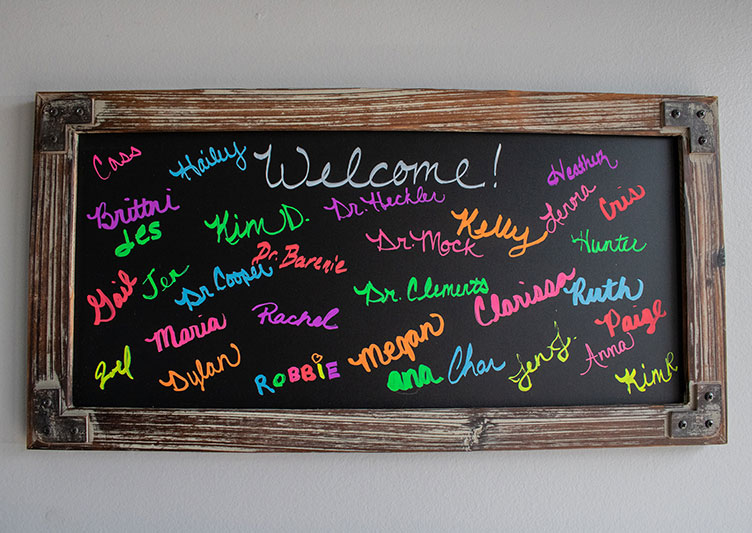 Welcome!
Cass
Hailey
Heather
Brittni
Dr. Heckler
Lenora
Cris
Les
Kim D.
Kelly
Dr. Mock
Hunter
Dr. Barenie
Gail
Jen
Dr Cooper
Dr. Clements
Clarissa
Ruth
Maria
Rachel
Paige
Megan
Dylan
ROBBIE
ana
Char
Jen J.
Anna
Kim R